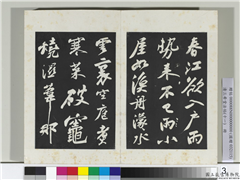 春江欲入戶雨
勢来不已雨小
屋如漁舟濛水
雲裏空庖煮
寒菜破竈
燒濕葦那